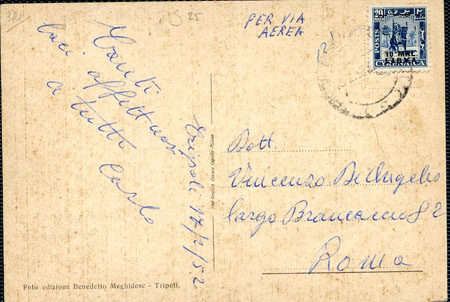 PER VIA
AEREA
Tanti
baci affettuosi
a tutti
Carlo
Tripoli 17/7/52
Dott.
Vincenzo
Largo Brancaccio 82
Roma
POSTS
CYRENAICA
Foto edizione Benedetto Meghidesc - Tripoli.